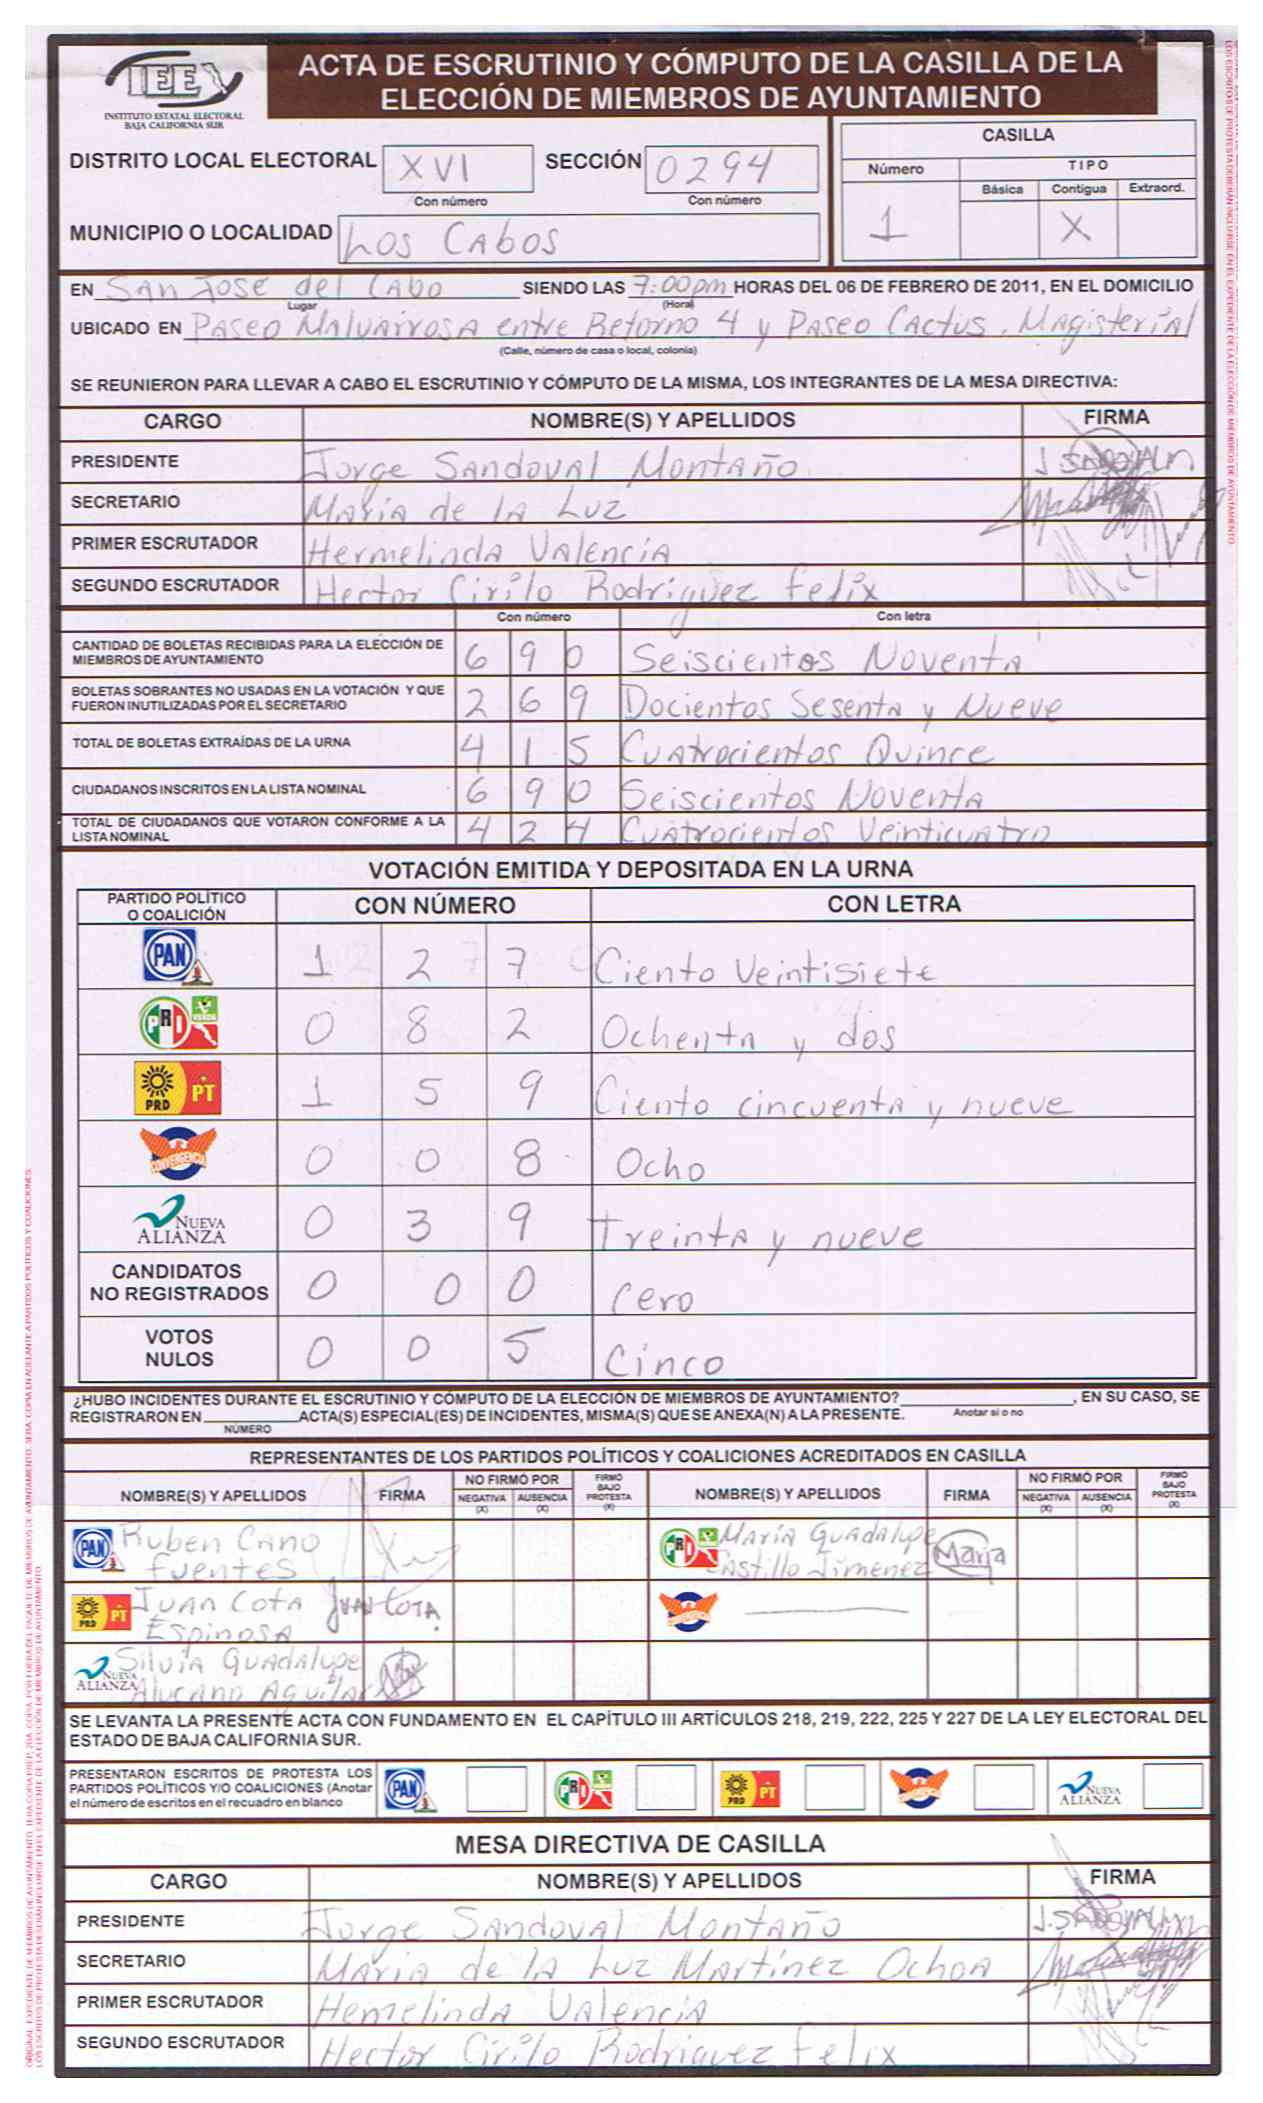 IEE
INSTITUTO ESTATAL ELECTORAL
BAJA CALIFORNIA SUR
ACTA DE ESCRUTINIO Y CÓMPUTO DE LA CASILLA DE LA
ELECCIÓN DE MIEMBROS DE AYUNTAMIENTO
DISTRITO LOCAL ELECTORAL XVI SECCIÓN 0294
Con número Con número
MUNICIPIO O LOCALIDAD Los Cabos
CASILLA
Número TIPO
Básica Contigua Extraord.
1 X
EN San Jose del Cabo SIENDO LAS 7:00pm HORAS DEL 06 DE FEBRERO DE 2011, EN EL DOMICILIO
Lugar (Hora)
UBICADO EN Paseo Malvarrosa entre Retorno 4 y Paseo Cactus, Magisterial
(Calle, número de casa o local, colonia)
SE REUNIERON PARA LLEVAR A CABO EL ESCRUTINIO Y CÓMPUTO DE LA MISMA, LOS INTEGRANTES DE LA MESA DIRECTIVA:
CARGO NOMBRE(S) Y APELLIDOS FIRMA
PRESIDENTE Jorge Sandoval Montaño
SECRETARIO Maria de la Luz
PRIMER ESCRUTADOR Hermelinda Valencia
SEGUNDO ESCRUTADOR Hector Cirilo Rodriguez Felix
Con número Con letra
CANTIDAD DE BOLETAS RECIBIDAS PARA LA ELECCIÓN DE
MIEMBROS DE AYUNTAMIENTO 6 9 0 Seiscientos Noventa
BOLETAS SOBRANTES NO USADAS EN LA VOTACIÓN Y QUE
FUERON INUTILIZADAS POR EL SECRETARIO 2 6 9 Docientos Sesenta y Nueve
TOTAL DE BOLETAS EXTRAÍDAS DE LA URNA 4 1 5 Cuatrocientos Quince
CIUDADANOS INSCRITOS EN LA LISTA NOMINAL 6 9 0 Seiscientos Noventa
TOTAL DE CIUDADANOS QUE VOTARON CONFORME A LA
LISTA NOMINAL 4 2 4 Cuatrocientos Veinticuatro
VOTACIÓN EMITIDA Y DEPOSITADA EN LA URNA
PARTIDO POLÍTICO
O COALICIÓN CON NÚMERO CON LETRA
PAN 1 2 7 Ciento Veintisiete
PRI VERDE 0 8 2 Ochenta y dos
PRD PT 1 5 9 Ciento cincuenta y nueve
CONVERGENCIA 0 0 8 Ocho
NUEVA ALIANZA 0 3 9 Treinta y nueve
CANDIDATOS
NO REGISTRADOS 0 0 0 Cero
VOTOS
NULOS 0 0 5 Cinco
¿HUBO INCIDENTES DURANTE EL ESCRUTINIO Y CÓMPUTO DE LA ELECCIÓN DE MIEMBROS DE AYUNTAMIENTO? , EN SU CASO, SE
REGISTRARON EN ACTA(S) ESPECIAL(ES) DE INCIDENTES, MISMA(S) QUE SE ANEXA(N) A LA PRESENTE. Anotar si o no
NÚMERO
REPRESENTANTES DE LOS PARTIDOS POLÍTICOS Y COALICIONES ACREDITADOS EN CASILLA
NOMBRE(S) Y APELLIDOS FIRMA NO FIRMÓ POR NEGATIVA (X) AUSENCIA (X) FIRMÓ BAJO PROTESTA (X) NOMBRE(S) Y APELLIDOS FIRMA NO FIRMÓ POR NEGATIVA (X) AUSENCIA (X) FIRMÓ BAJO PROTESTA (X)
PAN Ruben Cano Fuentes
PRI María Guadalupe Castillo Jimenez Maria
PRD PT Juan Cota Espinosa Juan Cota
CONVERGENCIA
NUEVA ALIANZA Silvia Guadalupe Aguilar
SE LEVANTA LA PRESENTE ACTA CON FUNDAMENTO EN EL CAPÍTULO III ARTÍCULOS 218, 219, 222, 225 Y 227 DE LA LEY ELECTORAL DEL
ESTADO DE BAJA CALIFORNIA SUR.
PRESENTARON ESCRITOS DE PROTESTA LOS
PARTIDOS POLÍTICOS Y/O COALICIONES (Anotar
el número de escritos en el recuadro en blanco
PAN PRI PRD PT CONVERGENCIA NUEVA ALIANZA
MESA DIRECTIVA DE CASILLA
CARGO NOMBRE(S) Y APELLIDOS FIRMA
PRESIDENTE Jorge Sandoval Montaño
SECRETARIO Maria de la Luz Martinez Ochoa
PRIMER ESCRUTADOR Hemelinda Valencia
SEGUNDO ESCRUTADOR Hector Cirilo Rodriguez Felix
LOS ESCRITOS DE PROTESTA DEBERÁN INCLUIRSE EN EL EXPEDIENTE DE LA ELECCIÓN DE MIEMBROS DE AYUNTAMIENTO